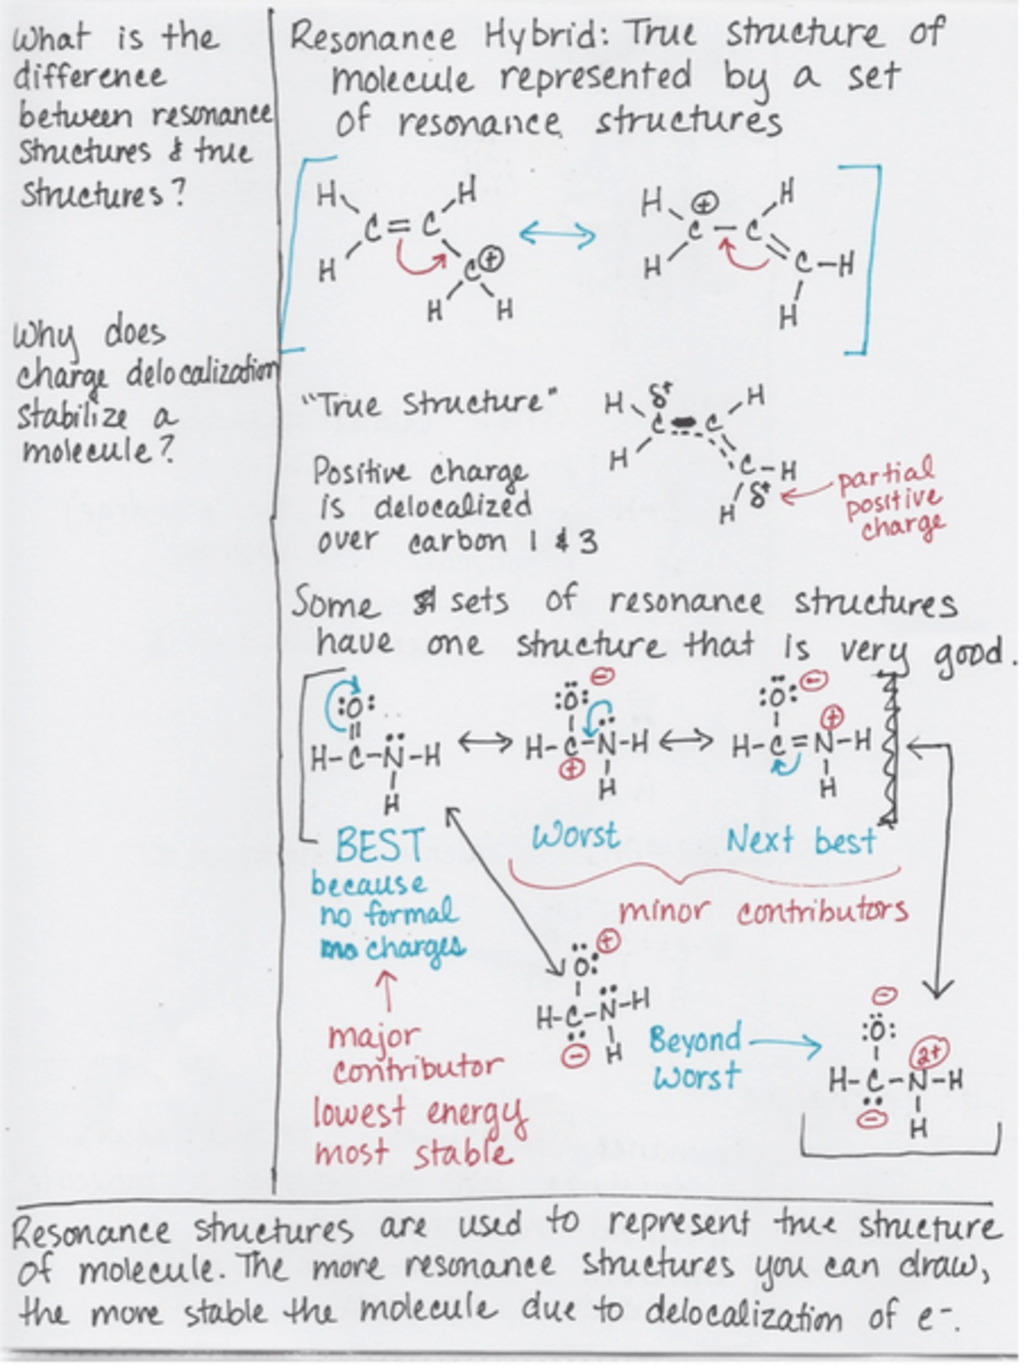 What is the
difference
between resonance
structures & true
structures?
Why does
charge delocalization
stabilize a
molecule?
Resonance Hybrid: True structure of
molecule represented by a set
of resonance structures
H H H ⊕ H
C=C ↔ C-C
H C⊕ H C-H
H H H
"True Structure"
Positive charge
is delocalized
over carbon 1 & 3
H δ+ H
C C
H C-H
H δ+
partial
positive
charge
Some sets of resonance structures
have one structure that is very good.
:O: :Ö: ⊖ :Ö: ⊖
H-C-N̈-H ↔ H-C-N̈-H ↔ H-C=N-H
⊕ ⊕
H H H
BEST
because
no formal
charges
Worst
Next best
minor contributors
major
contributor
lowest energy
most stable
Ö: ⊕
H-C-N̈-H
⊖ H
Beyond
worst
⊖
:Ö:
2+
H-C-N-H
⊖ H
Resonance structures are used to represent true structure
of molecule. The more resonance structures you can draw,
the more stable the molecule due to delocalization of e-.